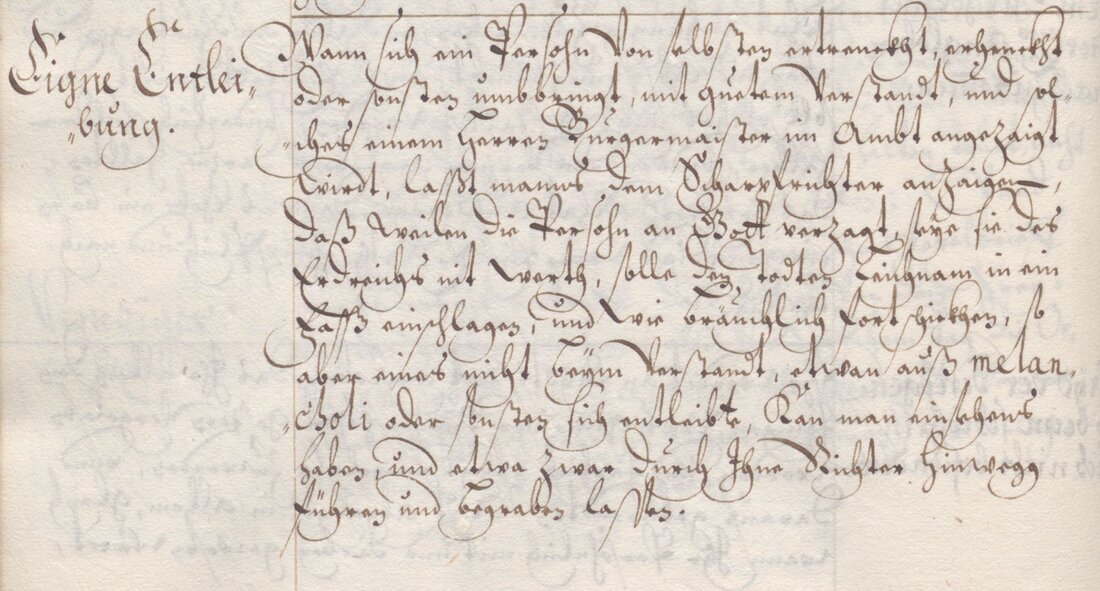 Eigne Entlei-
-bung.
Wann sich ein Persohn von selbsten ertrenckht, erhenckht
oder sonsten umbbringt, mit guetem Verstandt, und sol-
-ches einem Herren Burgermaister im Ambt angezaigt
wirdt, lasst manns dem Scharpfrichter anzaigen,
daß weilen die Persohn an Gott verzagt, seye sie des
Erdreichs nit werth, solle den todten Leichnam in ein
Fass einschlagen, und wie bräuchlich fortschickhen, so
aber eines nicht beym Verstandt, etwan auß melan-
-choli oder sonsten sich entleibte, Kan man einsehens
haben, und etwa zwar durch Ihne Richter hinwegg
führen und begraben lassen.